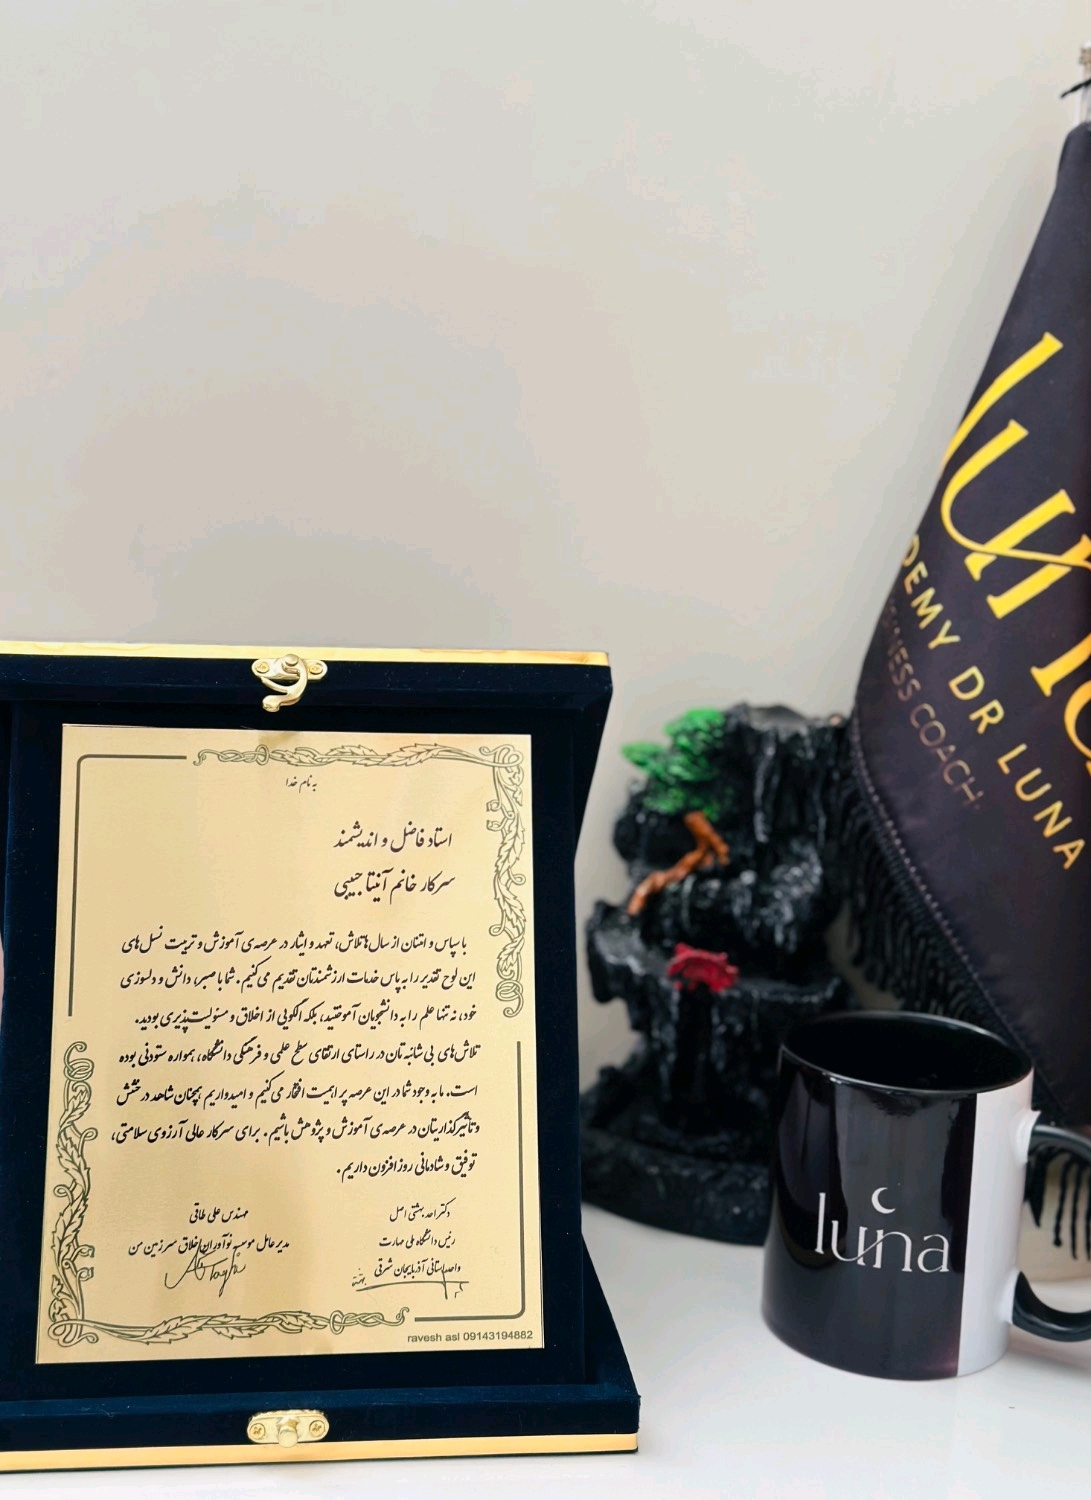 به نام خدا
استاد فاضل و اندیشمند
سرکار خانم آنیتا حبیبی
با سپاس و امتنان از سال‌ها تلاش، تعهد و ایثار در عرصه‌ی آموزش و تربیت نسل‌های
این لوح تقدیر را به پاس خدمات ارزشمندتان تقدیم می‌کنیم. شما با صبر، دانش و دلسوزی
خود، نه تنها علم را به دانشجویان آموختید، بلکه الگویی از اخلاق و مسئولیت‌پذیری بودید.
تلاش‌های بی شائبه‌تان در راستای ارتقای سطح علمی و فرهنگی دانشگاه، همواره ستودنی بوده
است. ما به وجود شما در این عرصه پر اهمیت افتخار می‌کنیم و امیدواریم همچنان شاهد درخشش
و تأثیرگذاریتان در عرصه‌ی آموزش و پژوهش باشیم. برای سرکار عالی آرزوی سلامتی،
توفیق و شادمانی روزافزون داریم.
دکتر احد بهشتی اصل
رئیس دانشگاه ملی مهارت
واحد استانی آذربایجان شرقی
مهندس علی طاقی
مدیر عامل موسسه نوآوران خلاق سرزمین من
ravesh asl 09143194882
luna
DEMY DR LUNA
NESS COACH
luna